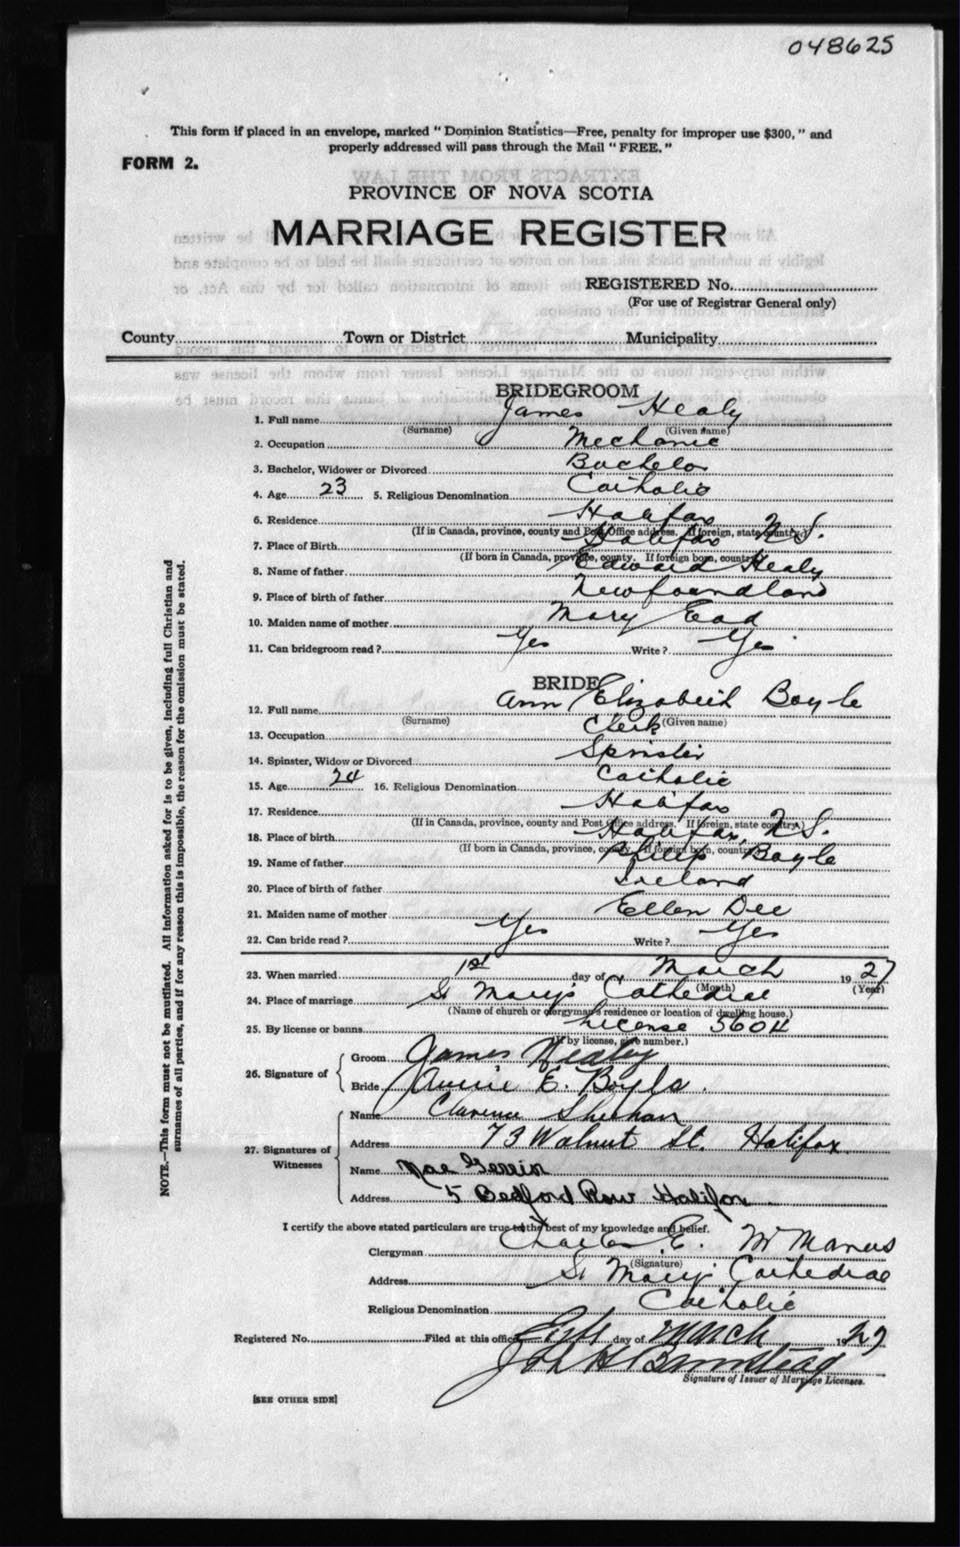 048625
This form if placed in an envelope, marked "Dominion Statistics—Free, penalty for improper use $300," and
properly addressed will pass through the Mail "FREE."
FORM 2.
PROVINCE OF NOVA SCOTIA
MARRIAGE REGISTER
REGISTERED No.
(For use of Registrar General only)
County Town or District Municipality
BRIDEGROOM
1. Full name James Healy
(Surname) (Given name)
2. Occupation Mechanic
3. Bachelor, Widower or Divorced Bachelor
4. Age 23 5. Religious Denomination Catholic
6. Residence Halifax
(If in Canada, province, county and Post Office address. If foreign, state country.)
7. Place of Birth Halifax N.S.
(If born in Canada, province, county. If foreign born, country)
8. Name of father Edward Healy
9. Place of birth of father Newfoundland
10. Maiden name of mother Mary Ead
11. Can bridegroom read? Yes Write? Yes
BRIDE
12. Full name Ann Elizabeth Boyle
(Surname) (Given name)
13. Occupation Clerk
14. Spinster, Widow or Divorced Spinster
15. Age 24 16. Religious Denomination Catholic
17. Residence Halifax
(If in Canada, province, county and Post Office address. If foreign, state country.)
18. Place of birth Halifax, N.S.
(If born in Canada, province, county. If foreign born, country)
19. Name of father Philip Boyle
20. Place of birth of father Ireland
21. Maiden name of mother Ellen Dee
22. Can bride read? Yes Write? Yes
23. When married 1st day of March 1927
(Month) (Year)
24. Place of marriage St Mary's Cathedral
(Name of church or clergyman's residence or location of dwelling house.)
25. By license or banns License 5604
(If by license, give number.)
26. Signature of Groom James Healy
Bride Annie E. Boyle.
27. Signatures of Witnesses
Name Clarence Sheehan
Address 73 Walnut St. Halifax.
Name Mae
Address 5 Bedford Row Halifax
I certify the above stated particulars are true to the best of my knowledge and belief.
Clergyman Charles E. McManus
(Signature)
Address St Mary's Cathedral
Religious Denomination Catholic
Registered No. Filed at this office day of March 1927
John H Barnstead
Signature of Issuer of Marriage Licenses.
[SEE OTHER SIDE]
NOTE.—This form must not be mutilated. All information asked for is to be given, including full Christian and
surnames of all parties, and if for any reason this is impossible, the reason for the omission must be stated.